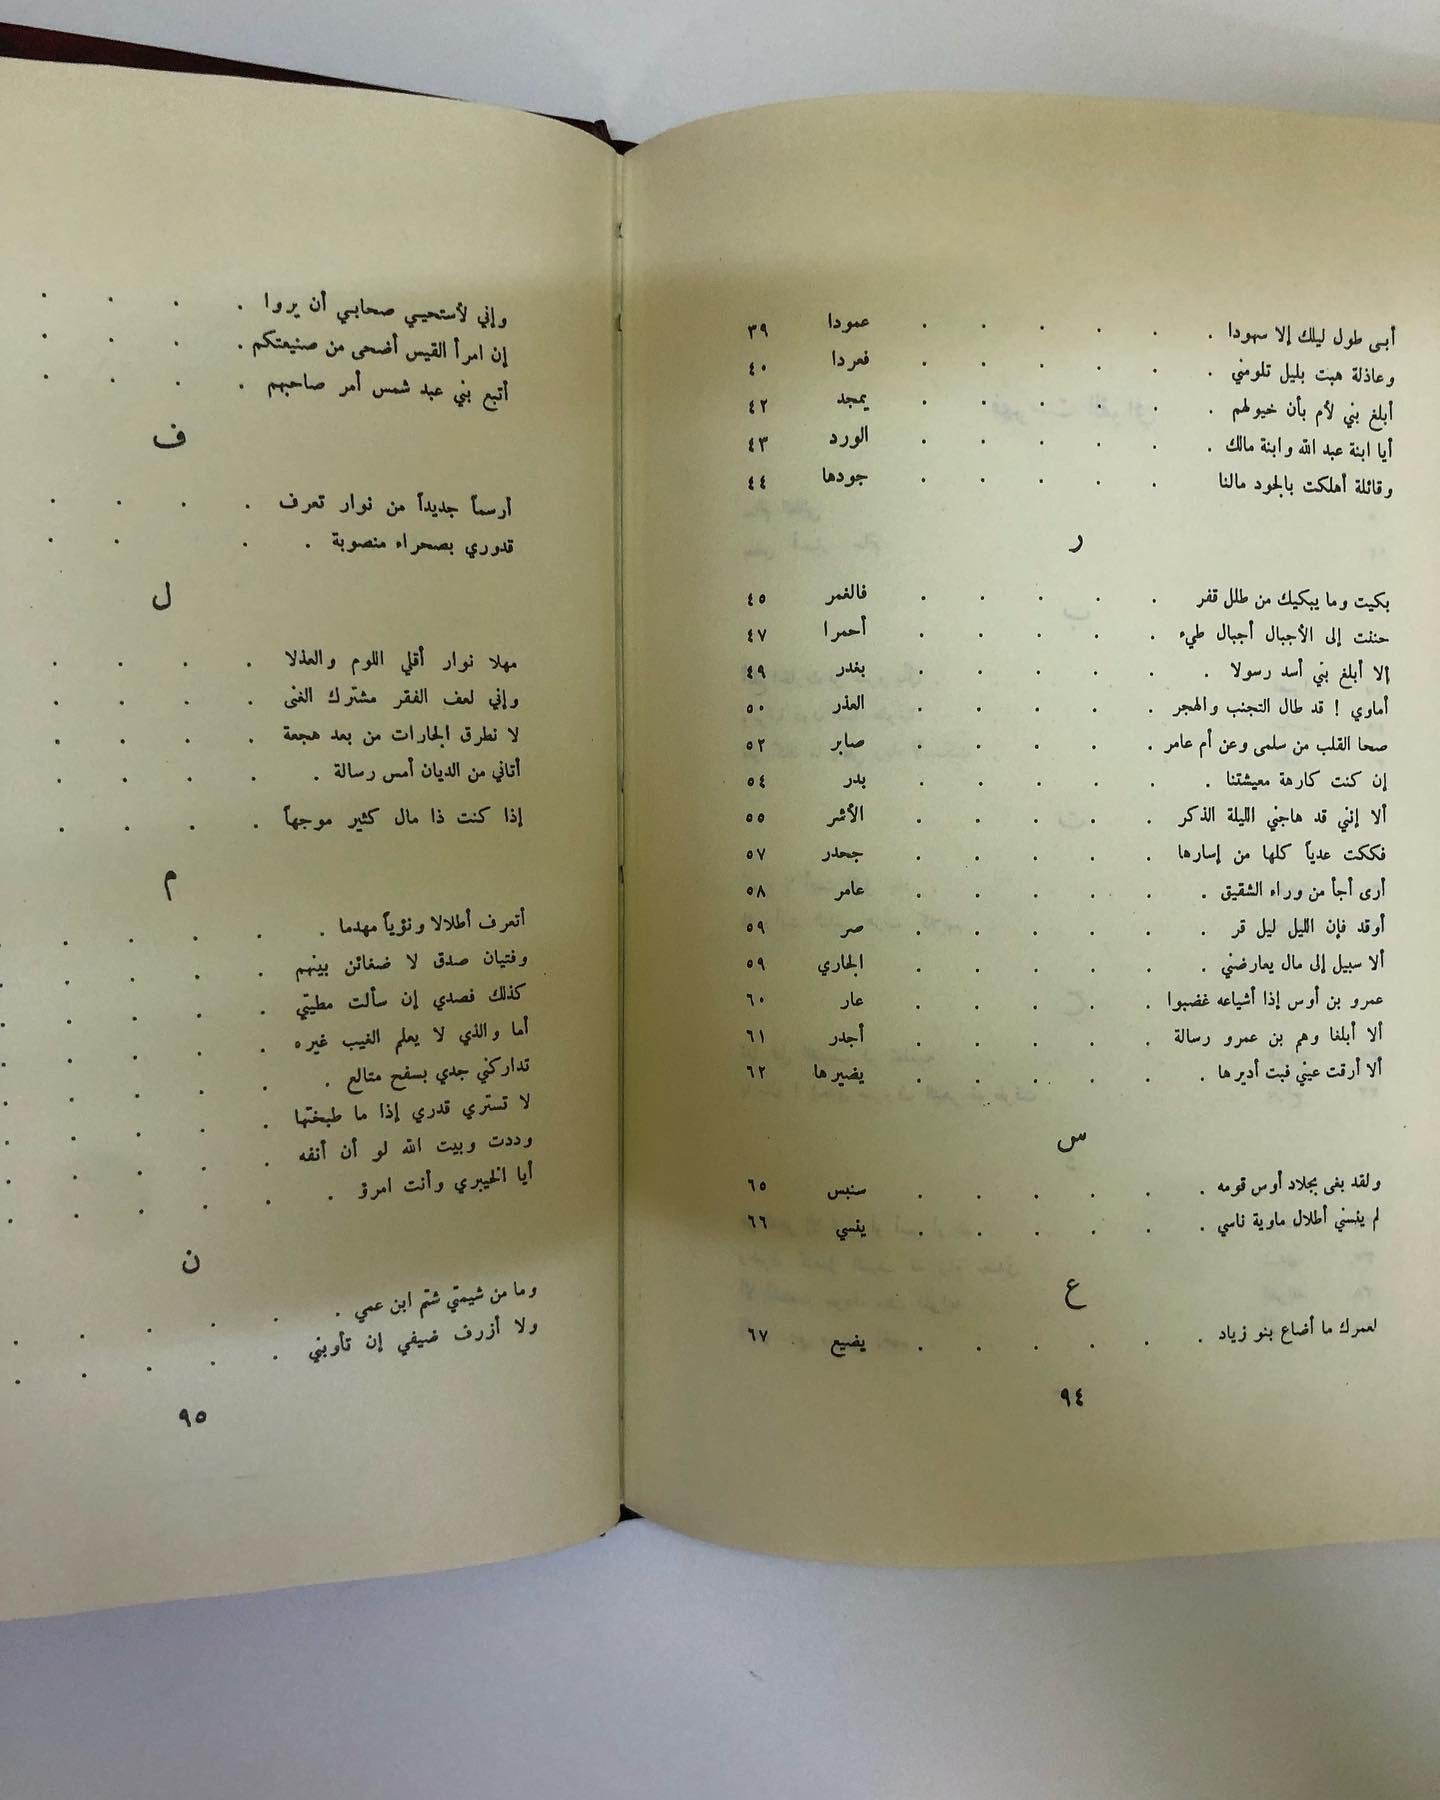 أبى طول ليلك إلا سهودا . . . . . . عمودا ٣٩
وعاذلة هبت بليل تلومني . . . . . . فعردا ٤٠
أبلغ بني لأم بأن خيولهم . . . . . . يمجد ٤٢
أيا ابنة عبد الله وابنة مالك . . . . . . الورد ٤٣
وقائلة أهلكت بالجود مالنا . . . . . جودها ٤٤
ر
بكيت وما يبكيك من طلل قفر . . . . . فالغمر ٤٥
حننت إلى الأجبال أجبال طيء . . . . . أحمرا ٤٧
ألا أبلغ بني أسد رسولا . . . . . . بغدر ٤٩
أماوي ! قد طال التجنب والهجر . . . . . العذر ٥٠
صحا القلب من سلمى وعن أم عامر . . . . . صابر ٥٢
إن كنت كارهة معيشتنا . . . . . . بدر ٥٤
ألا إنني قد هاجني الليلة الذكر . . . . . الأشر ٥٥
فككت عدياً كلها من إسارها . . . . . جحدر ٥٧
أرى أجأ من وراء الشقيق . . . . . . عامر ٥٨
أوقد فإن الليل ليل قر . . . . . . صر ٥٩
ألا سبيل إلى مال يعارضني . . . . . . الجاري ٥٩
عمرو بن أوس إذا أشياعه غضبوا . . . . . عار ٦٠
ألا أبلغا وهم بن عمرو رسالة . . . . . أجدر ٦١
ألا أرقت عيني فبت أديرها . . . . . . يضيرها ٦٢
س
ولقد بغى بجلاد أوس قومه . . . . . . سنبس ٦٥
لم ينسني أطلال ماوية ناسي . . . . . . ينسي ٦٦
ع
لعمرك ما أضاع بنو زياد . . . . . . يضيع ٦٧
٩٤
وإني لأستحيي صحابي أن يروا . . . .
إن امرأ القيس أضحى من صنيعتكم . . . .
أتبع بني عبد شمس أمر صاحبهم . . . .
ف
أرسماً جديداً من نوار تعرف . . . .
قدوري بصحراء منصوبة . . . .
ل
مهلا نوار أقلي اللوم والعذلا . . . .
وإني لعف الفقر مشترك الغنى . . . .
لا نطرق الجارات من بعد هجعة . . . .
أتاني من الديان أمس رسالة . . . . .
إذا كنت ذا مال كثير موجهاً . . . .
م
أتعرف أطلالا ونؤياً مهدما . . . . . .
وفتيان صدق لا ضغائن بينهم . . . . .
كذلك فصدي إن سألت مطيتي . . . . .
أما والذي لا يعلم الغيب غيره . . . . .
تداركني جدي بسفح متالع . . . . . .
لا تستري قدري إذا ما طبختها . . . . .
وددت وبيت الله لو أن أنفه . . . . .
أيا الخيبري وأنت امرؤ . . . . . .
ن
وما من شيمتي شتم ابن عمي . . . . . .
ولا أزرف ضيفي إن تأوبني . . . . .
٩٥